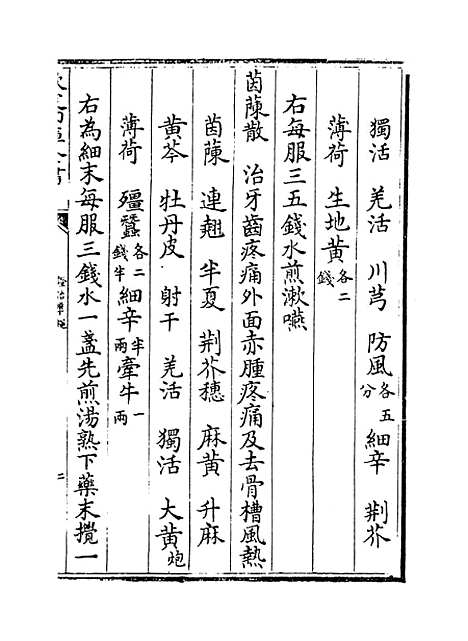 獨活 羌活 川芎 防風各五分 細辛 荆芥
薄荷 生地黃各二錢
右每服三五錢水煎漱嚥
茵蔯散 治牙齒疼痛外面赤腫疼痛及去骨槽風熱
茵蔯 連翹 半夏 荆芥穗 麻黃 升麻
黃芩 牡丹皮 射干 羌活 獨活 大黃炮
薄荷 殭蠶各二錢半 細辛半兩 牽牛一兩
右為細末每服三錢水一盞先煎湯熟下藥末攪一